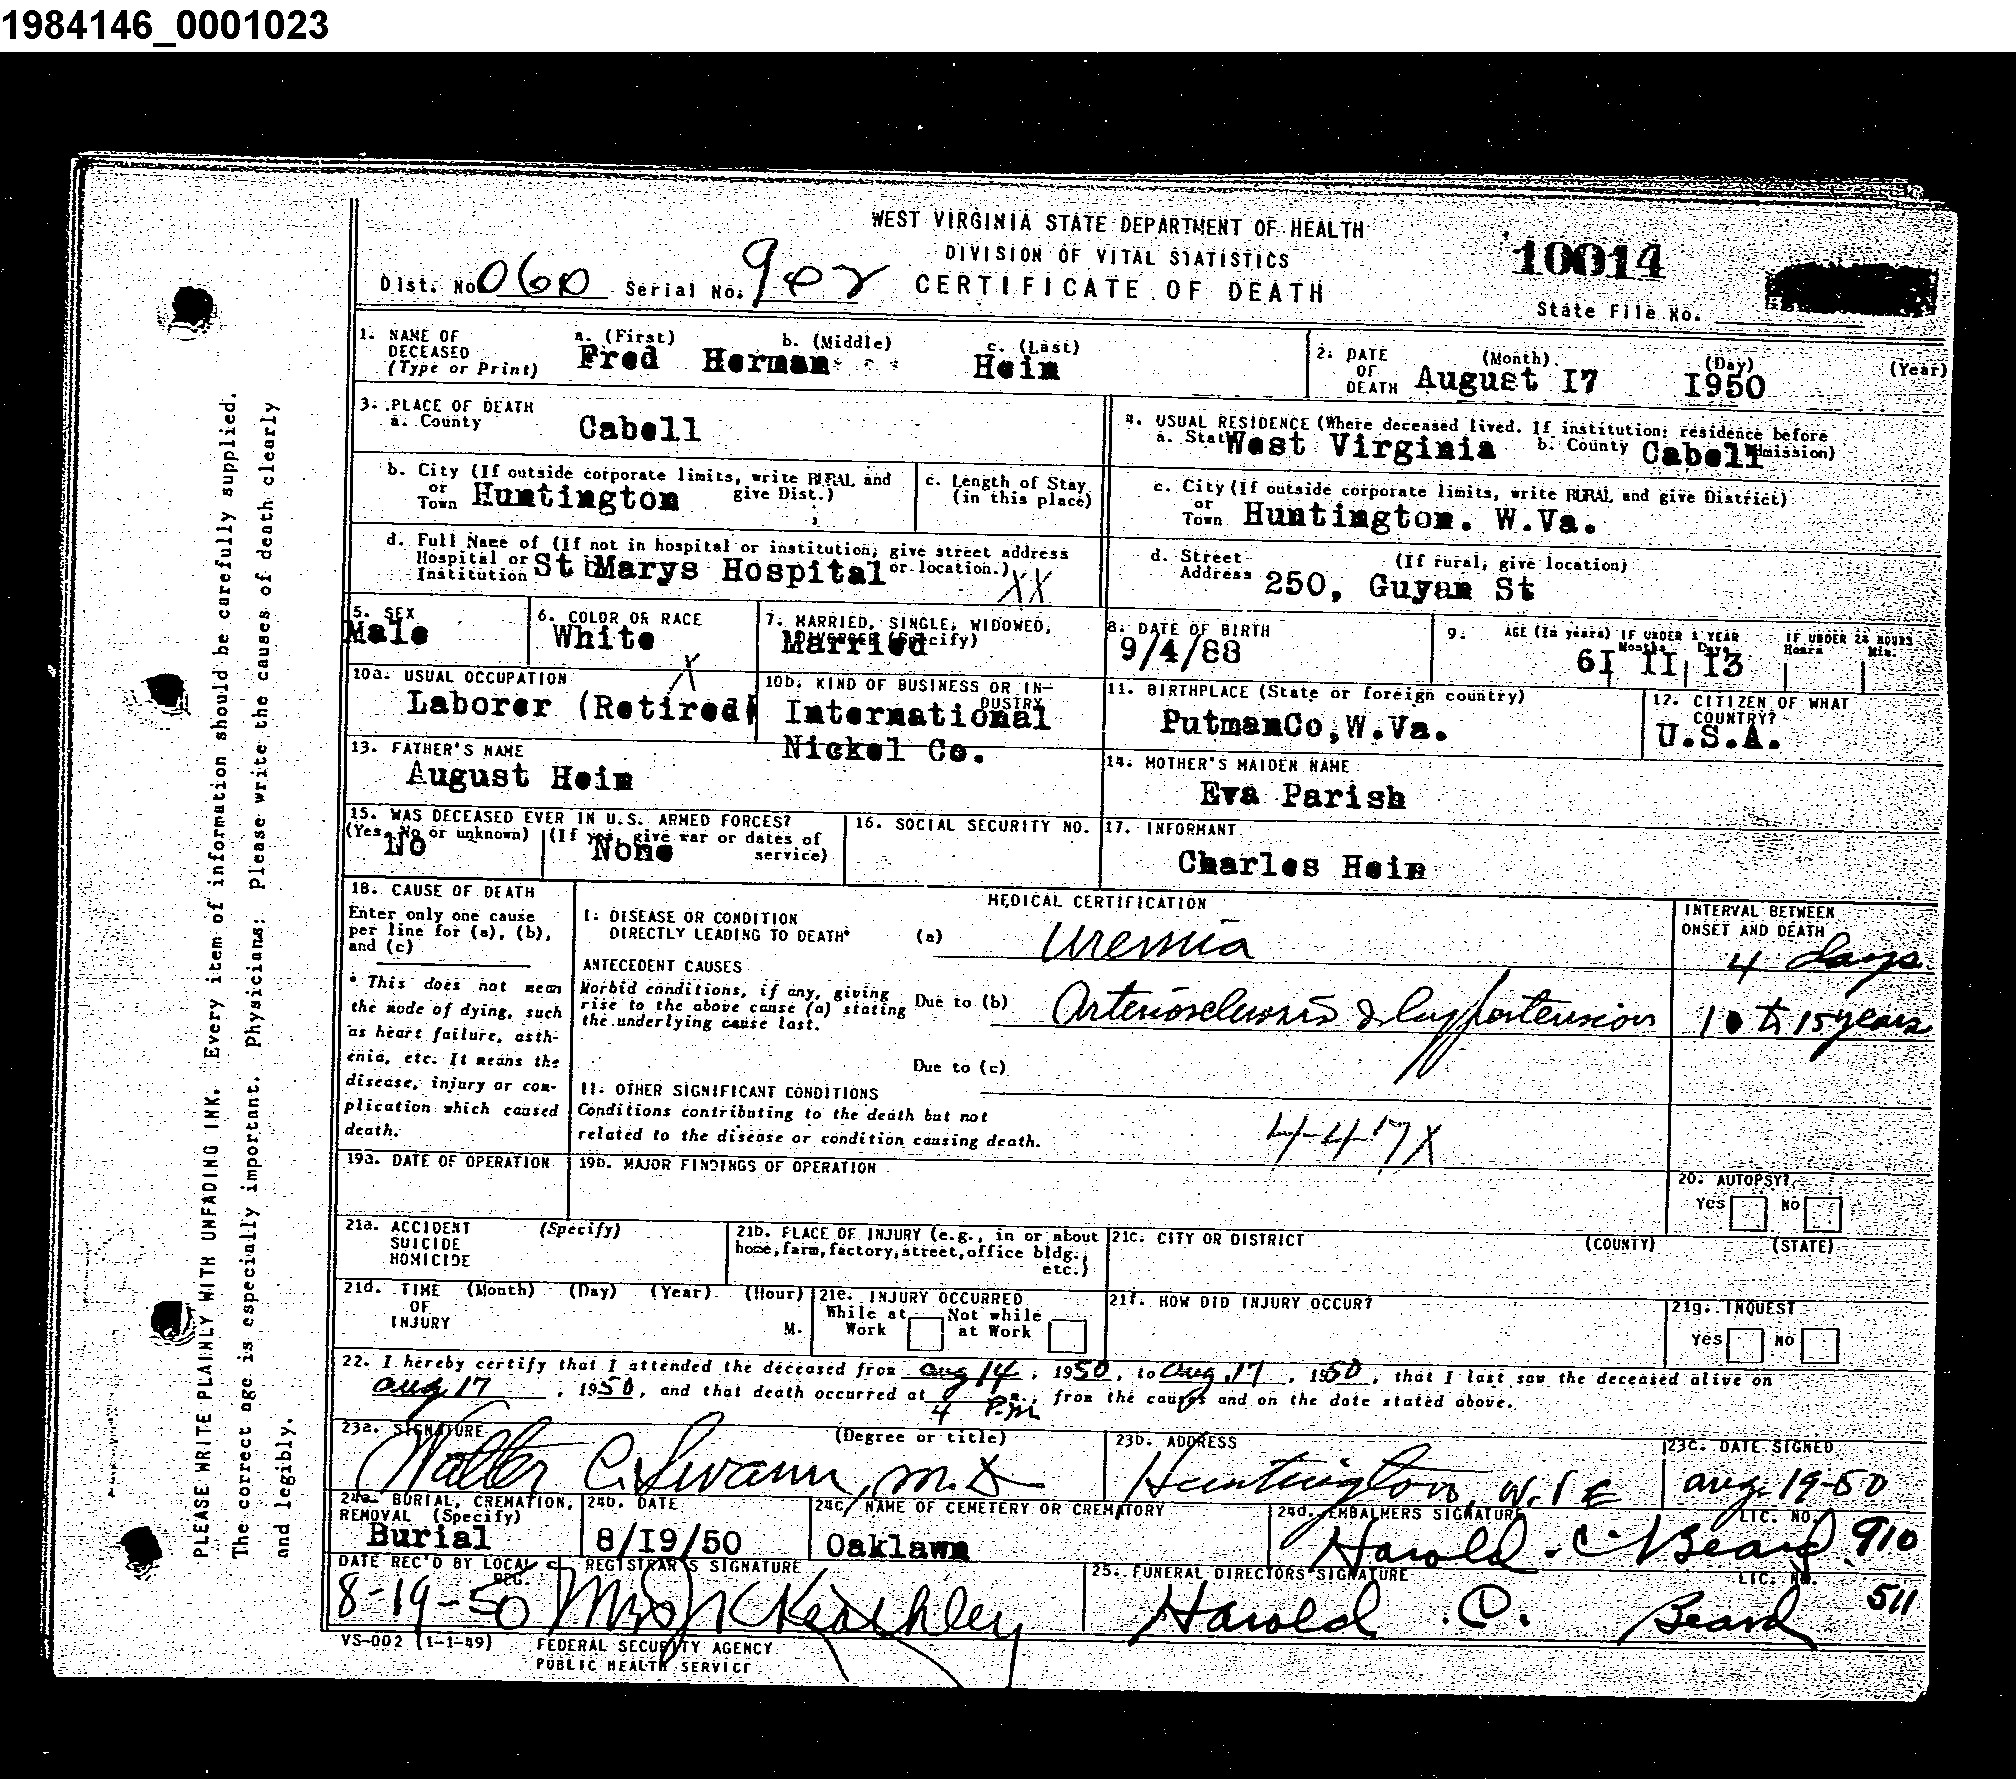 1984146_0001023
WEST VIRGINIA STATE DEPARTMENT OF HEALTH
DIVISION OF VITAL STATISTICS
CERTIFICATE OF DEATH
10014
Dist. No. 060 Serial No. 902
State File No.
1. NAME OF DECEASED (Type or Print) a. (First) Fred b. (Middle) Herman c. (Last) Hein
2. DATE OF DEATH (Month) (Day) (Year) August I7 I950
3. PLACE OF DEATH
a. County Cabell
4. USUAL RESIDENCE (Where deceased lived. If institution: residence before admission)
a. State West Virginia b. County Cabell
b. City (If outside corporate limits, write RURAL and give Dist.) or Town Huntington
c. Length of Stay (in this place)
c. City (If outside corporate limits, write RURAL and give District) or Town Huntington. W.Va.
d. Full Name of (If not in hospital or institution, give street address or location.) Hospital or Institution St Marys Hospital XX
d. Street Address (If rural, give location) 250, Guyan St
5. SEX Male
6. COLOR OR RACE White X
7. MARRIED, SINGLE, WIDOWED, DIVORCED (Specify) Married
8. DATE OF BIRTH 9/4/88
9. AGE (In years) 6I IF UNDER 1 YEAR Months II Days I3 IF UNDER 24 HOURS Hours Min.
10a. USUAL OCCUPATION Laborer (Retired)
10b. KIND OF BUSINESS OR INDUSTRY International Nickel Co.
11. BIRTHPLACE (State or foreign country) PutmanCo,W.Va.
12. CITIZEN OF WHAT COUNTRY? U.S.A.
13. FATHER'S NAME August Hein
14. MOTHER'S MAIDEN NAME Eva Parish
15. WAS DECEASED EVER IN U.S. ARMED FORCES? (Yes, No or unknown) No (If yes, give war or dates of service) None
16. SOCIAL SECURITY NO.
17. INFORMANT Charles Hein
18. CAUSE OF DEATH
Enter only one cause per line for (a), (b), and (c)
* This does not mean the mode of dying, such as heart failure, asthenia, etc. It means the disease, injury or complication which caused death.
MEDICAL CERTIFICATION
INTERVAL BETWEEN ONSET AND DEATH
I. DISEASE OR CONDITION DIRECTLY LEADING TO DEATH* (a) Uremia 4 days
ANTECEDENT CAUSES
Morbid conditions, if any, giving rise to the above cause (a) stating the underlying cause last.
Due to (b) Arteriosclerosis & hyppertension 10 to 15 years
Due to (c)
II. OTHER SIGNIFICANT CONDITIONS
Conditions contributing to the death but not related to the disease or condition causing death.
447X
19a. DATE OF OPERATION
19b. MAJOR FINDINGS OF OPERATION
20. AUTOPSY?
Yes No
21a. ACCIDENT SUICIDE HOMICIDE (Specify)
21b. PLACE OF INJURY (e.g., in or about home, farm, factory, street, office bldg., etc.)
21c. CITY OR DISTRICT (COUNTY) (STATE)
21d. TIME OF INJURY (Month) (Day) (Year) (Hour) M.
21e. INJURY OCCURRED
While at Work Not while at Work
21f. HOW DID INJURY OCCUR?
21g. INQUEST
Yes No
22. I hereby certify that I attended the deceased from Aug 14, 1950, to Aug. 17, 1950, that I last saw the deceased alive on
Aug 17, 1950, and that death occurred at 4 P.m., from the causes and on the date stated above.
23a. SIGNATURE (Degree or title) Walter C. Swann, M.D.
23b. ADDRESS Huntington, W.
23c. DATE SIGNED Aug-19-50
24a. BURIAL, CREMATION, REMOVAL (Specify) Burial
24b. DATE 8/I9/50
24c. NAME OF CEMETERY OR CREMATORY Oaklawn
24d. EMBALMERS SIGNATURE Harold C. Beard LIC. NO. 910
DATE REC'D BY LOCAL REG. 8-19-50
REGISTRAR'S SIGNATURE
25. FUNERAL DIRECTORS SIGNATURE Harold C. Beard LIC. NO. 511
VS-002 (1-1-49)
FEDERAL SECURITY AGENCY
PUBLIC HEALTH SERVICE
PLEASE WRITE PLAINLY WITH UNFADING INK. Every item of information should be carefully supplied.
The correct age is especially important. Physicians: Please write the causes of death clearly
and legibly.